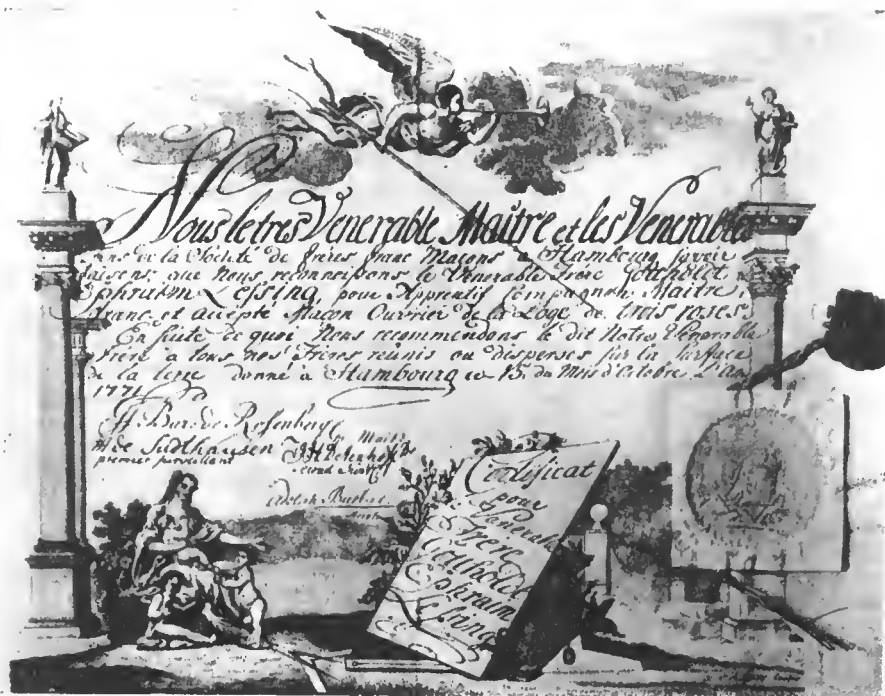 Nous le tres Venerable Maitre et les Venerable
de la Societé de freres franc Maçons a Hambourg
faisons, que Nous reconnoissons le Venerable frere Gottholdt
Ephraim Lessing, pour Apprentif Compagnon Maitre
franc et accepté Maçon Ouvrier de la Loge de trois roses.
En suite ce quoi Nous recommendons le dit Notre Venerable
frere à tous nos freres reunis ou disperses sur la surface
de la terre donné à Hambourg ce 15. du Mois d'Octobre L'An
1771
Bar: de Rosenberg
de Sudthausen
premier surveillant
Certificat
pour
Venerable
Frere
Gottholdt
Ephraim
Lessing